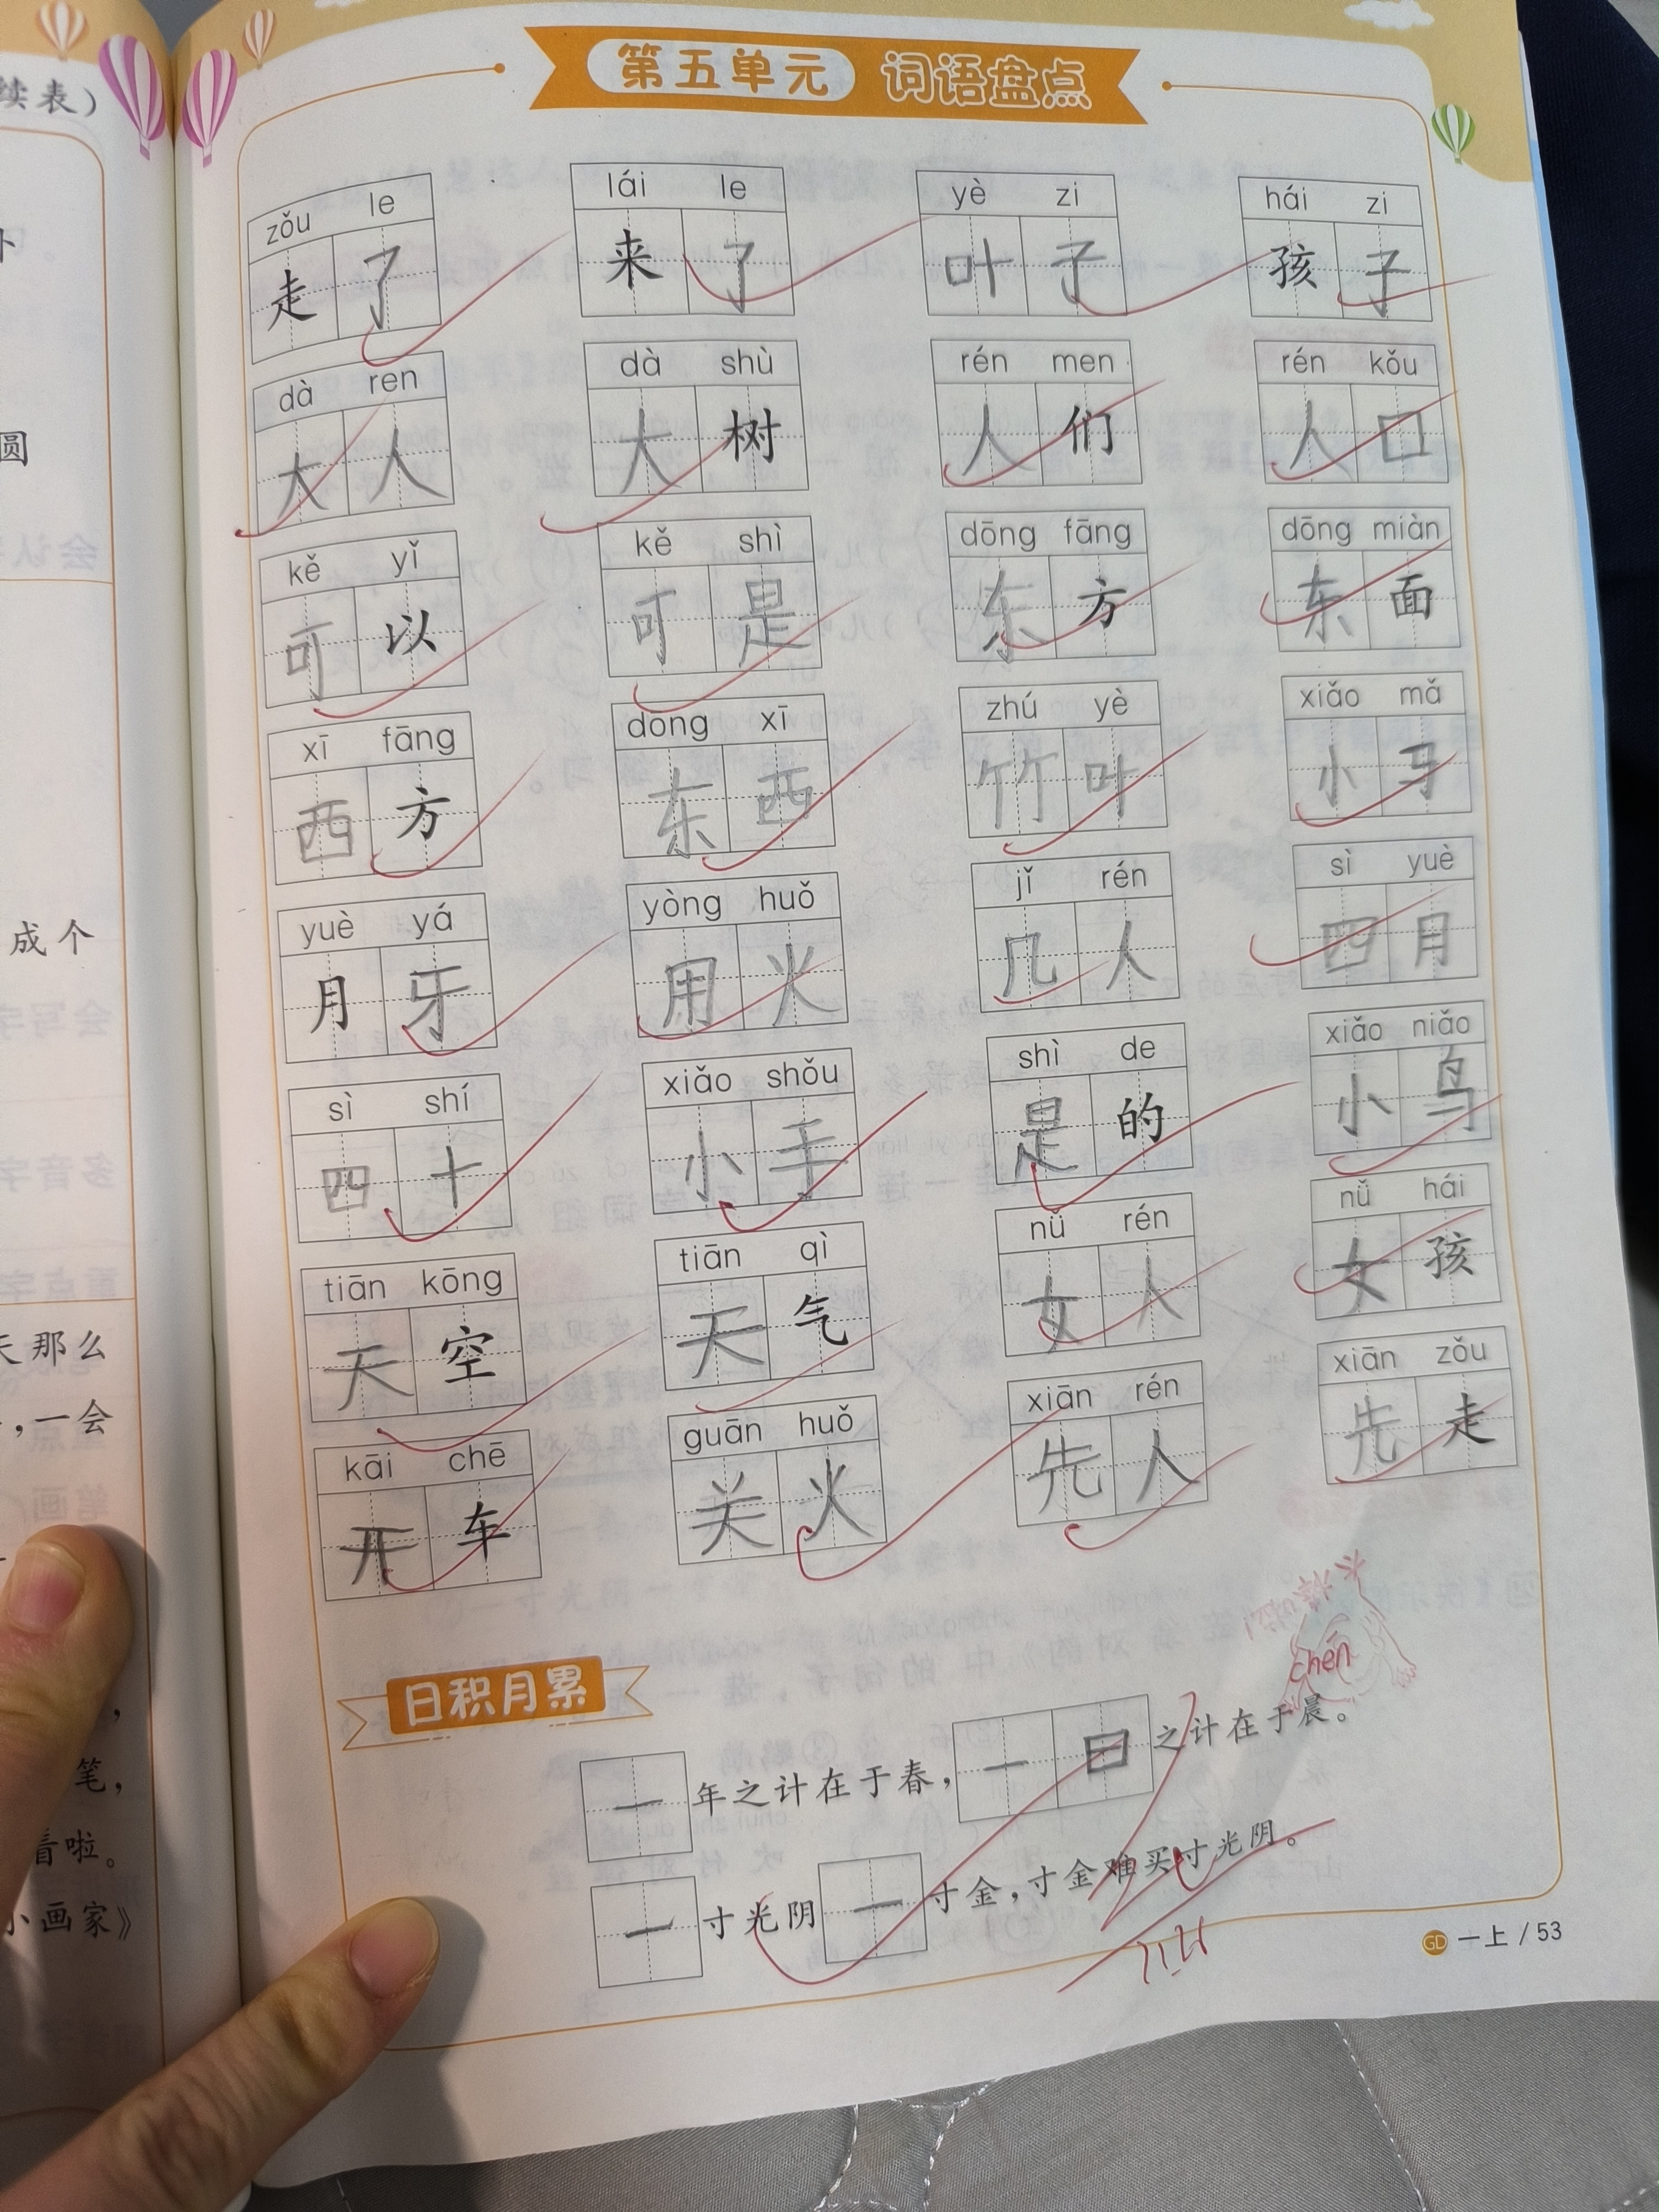 续表）
圆
成个
天那么
，一会
笔，
看啦。
小画家》
第五单元 词语盘点
zǒu le lái le yè zi hái zi
走了 来了 叶子 孩子
dà ren dà shù rén men rén kǒu
大人 大树 人们 人口
kě yǐ kě shì dōng fāng dōng miàn
可以 可是 东方 东面
xī fāng dōng xī zhú yè xiǎo mǎ
西方 东西 竹叶 小马
yuè yá yòng huǒ jǐ rén sì yuè
月牙 用火 几人 四月
sì shí xiǎo shǒu shì de xiǎo niǎo
四十 小手 是的 小鸟
tiān kōng tiān qì nǚ rén nǚ hái
天空 天气 女人 女孩
kāi chē guān huǒ xiān rén xiān zǒu
开车 关火 先人 先走
日积月累
chén
一年之计在于春，一日之计在于晨。
一寸光阴一寸金，寸金难买寸光阴。
GD 一上 / 53